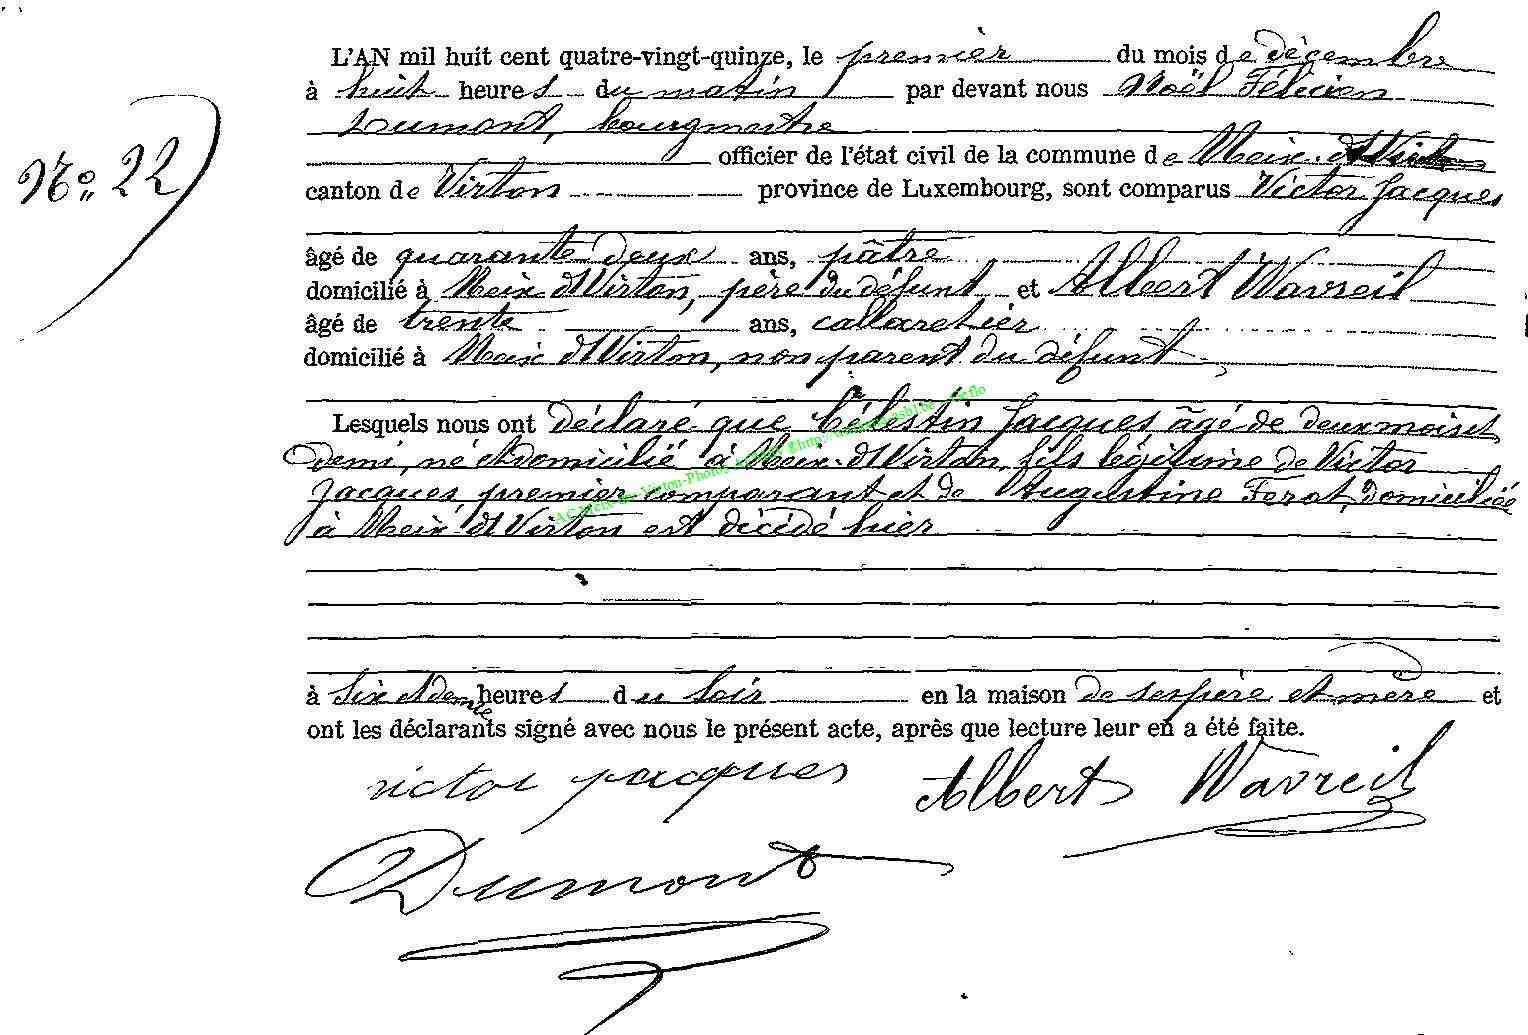 L'AN mil huit cent quatre-vingt-quinze, le premier du mois de décembre
à huit heures du matin par devant nous Noël Félicien
Dumont, bourgmestre
officier de l'état civil de la commune de Meix-dt Virton
N° 22
canton de Virton province de Luxembourg, sont comparus Victor Jacques
âgé de quarante deux ans, pâtre
domicilié à Meix dt Virton, père du défunt et Albert Wavreil
âgé de trente ans, cabaretier
domicilié à Meix dt Virton, non parent du défunt
Lesquels nous ont déclaré que Célestin Jacques âgé de deux mois et
demi, né et domicilié à Meix-dt Virton, fils légitime de Victor
Jacques, premier comparant et de Augustine Ferot, domiciliée
à Meix dt Virton est décédé hier
à six et demie heures du soir en la maison de ses père et mère et
ont les déclarants signé avec nous le présent acte, après que lecture leur en a été faite.
victor jacques Albert Wavreil
Dumont